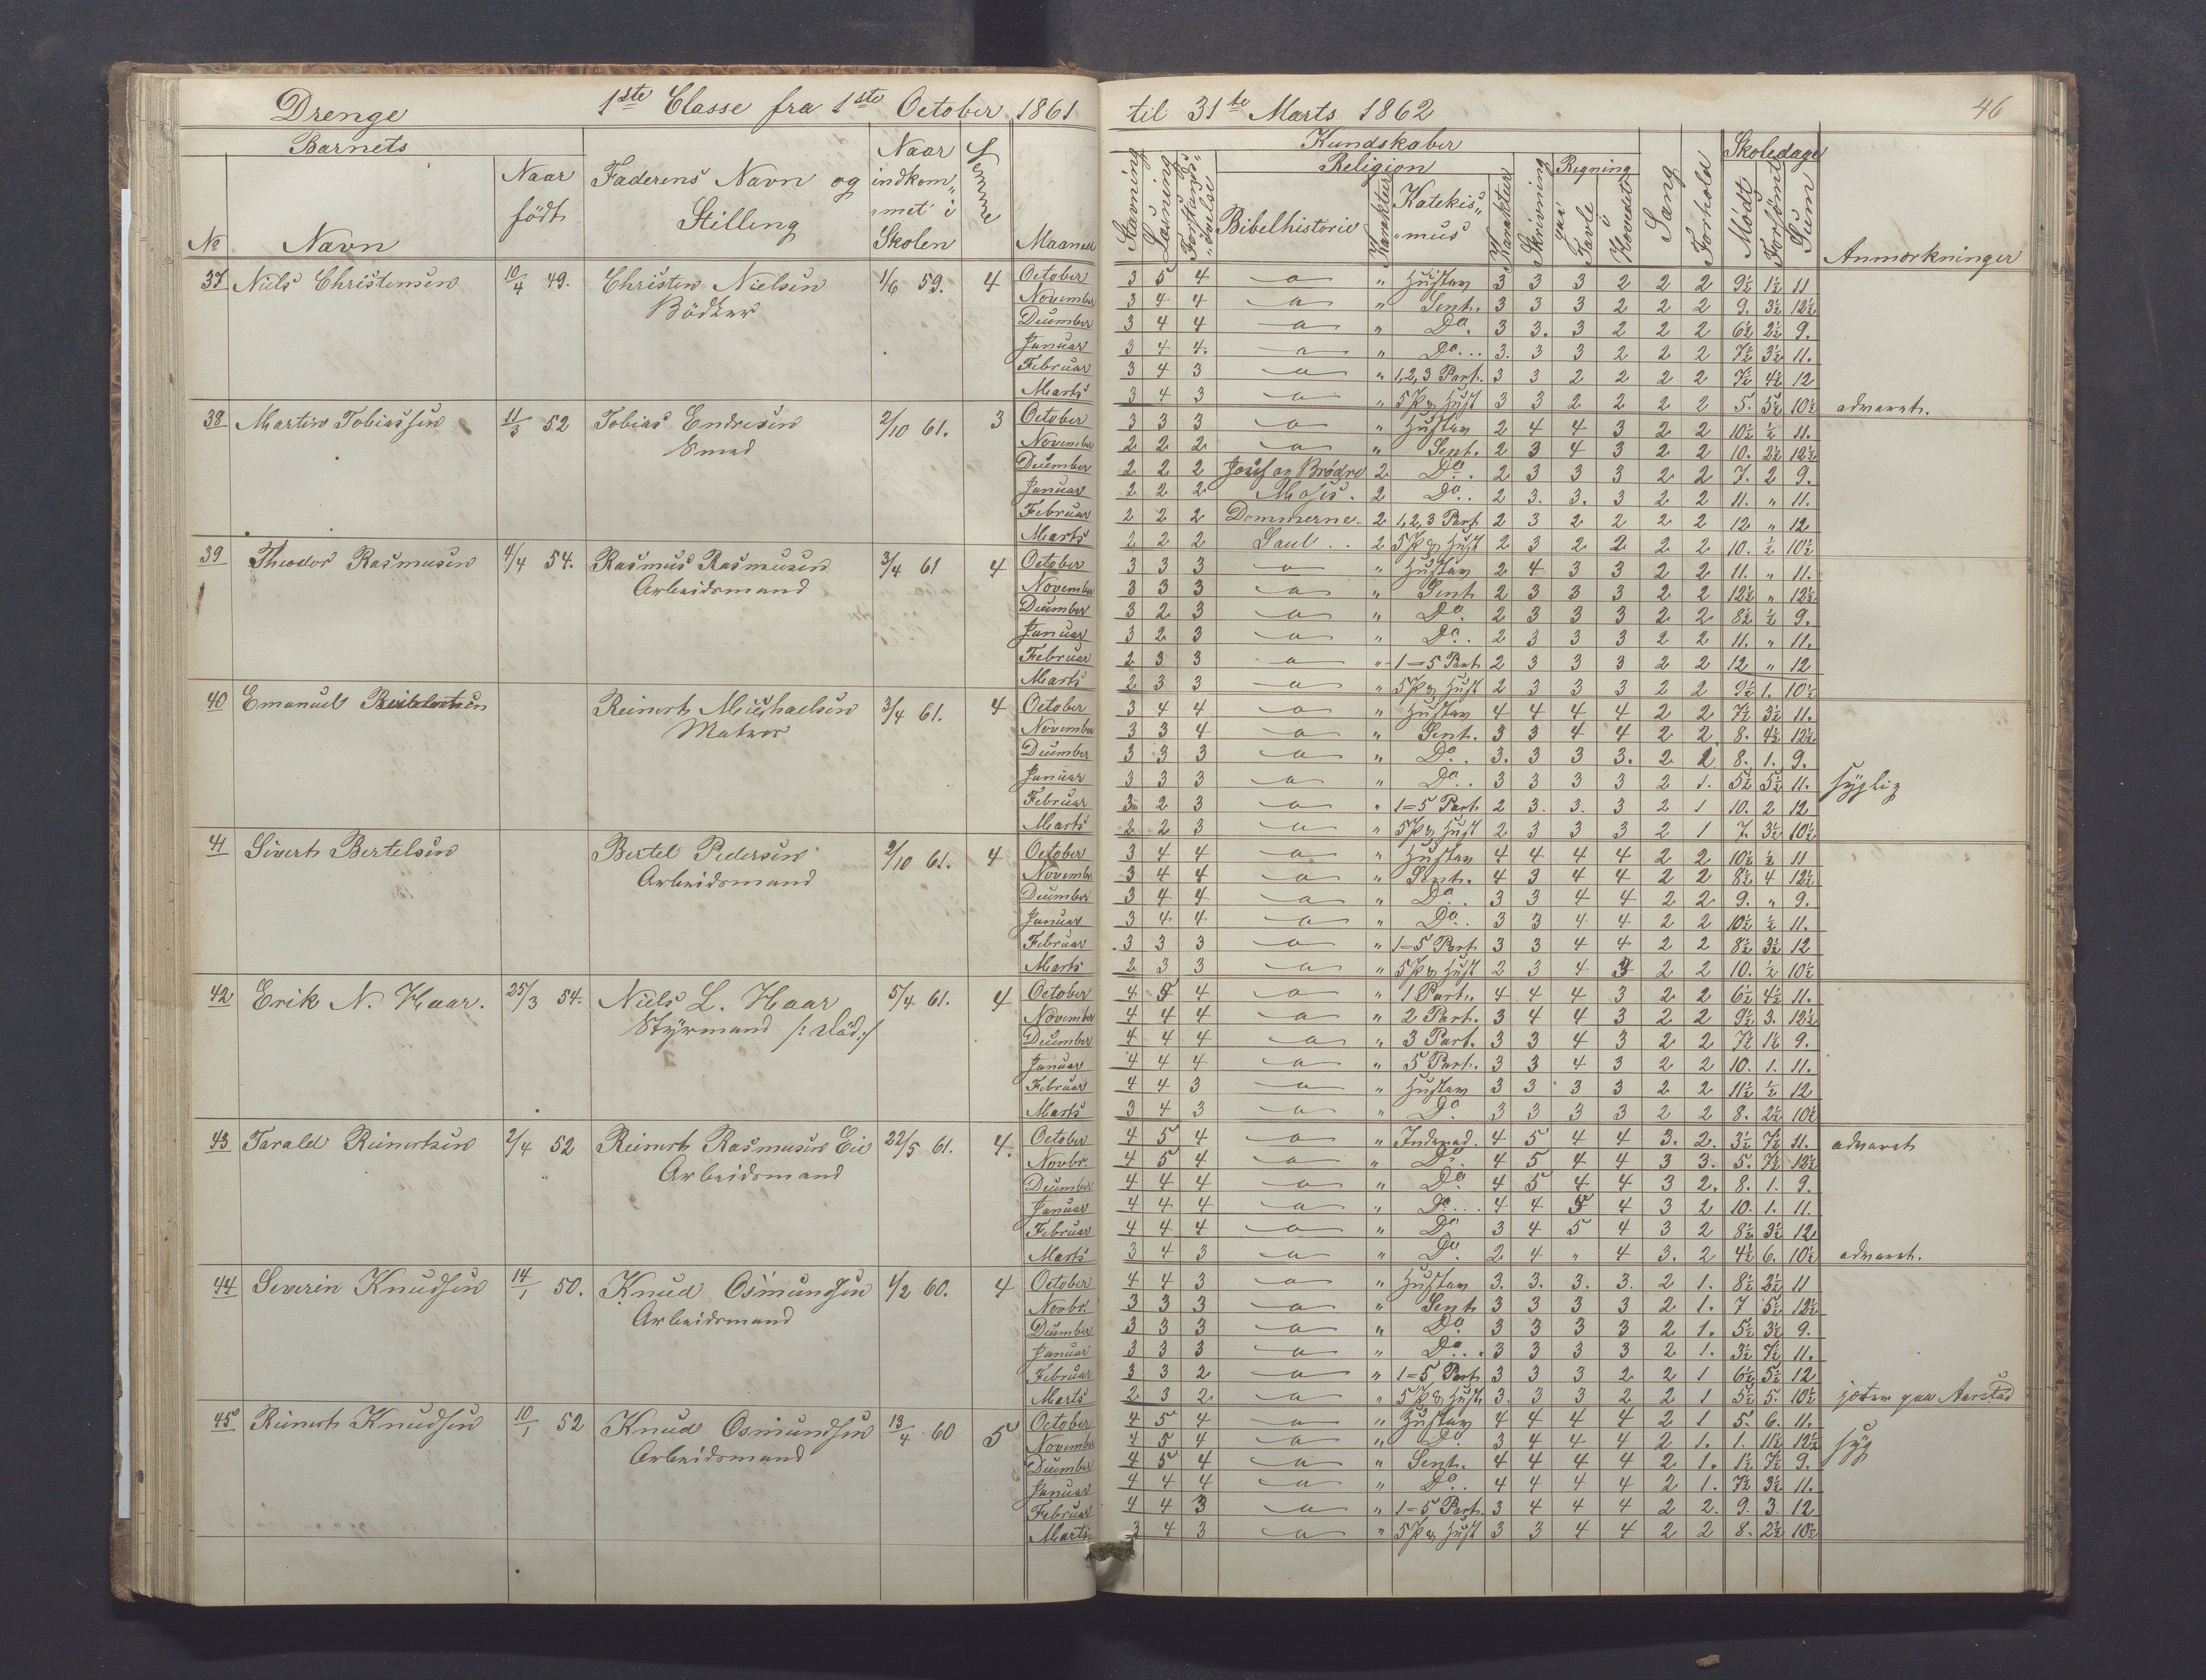 Drenge 1ste Classe fra 1ste October 1861 til 31te Marts 1862 46
Barnets Kundskaber Skoledage
Religion Regning
№ Navn Naar födt Faderens Navn og Stilling Naar indkommet i Skolen Maaned Stavning Læsning Bibelhistorie Karakter Katekismus Karakter Skrivning paa Tavle i Hovedet Sang Forhold Mödt Forsömt Sum Anmærkninger
37 Niels Christensen 10/4 49. Christen Nielsen 1/6 59. 4 October 3 5 4 " Zustav 3 3 3 2 2 2 9½ 1½ 11
Bödker November 3 4 4 " Sent. 3 3 3 2 2 2 9. 3½ 12½
December 3 4 4 " Do. 3 3. 3 2 2 2 6½ 2½ 9.
Januar 3 4 4. " Do... 3. 3 3 2 2 2 7½ 3½ 11.
Februar 3 4 3 " 1,2,3 Part. 3 3 2 2 2 2 7½ 4½ 12
Marts 3 4 3 " 5 P & Zust 3 3 2 2 2 2 5. 5½ 10½ advaret.
38 Martin Tobiassen 11/3 52 Tobias Endresen 2/10 61. 3 October 3 3 3 " Zustav 2 4 4 3 2 2 10½ ½ 11.
Smed November 2 2 2 " Sent. 2 3 4 3 2 2 10. 2½ 12½
December 2 2 2 Josef og Brødre 2 Do. 2 3 3 3 2 2 7. 2 9.
Januar 2 2 2 Moses. 2 Do.. 2 3. 3. 3 2 2 11. " 11.
Februar 2 2 2 Dommerne. 2 1,2,3 Part 2 3 2 2 2 2 12 " 12
Marts 2 2 2 Saul .. 2 5 P & Zust 2 3 2 2 2 2 10. ½ 10½
39 Theodor Rasmusen 4/4 54. Rasmus Rasmusen 3/4 61 4 October 3 3 3 " Zustav 2 4 3 3 2 2 11. " 11.
Arbeidsmand November 3 3 3 " Sent 2 3 3 3 2 2 12½ " 12½
December 3 2 3 " Do. 2 3 3 3 2 2 8½ ½ 9.
Januar 3 2 3 " Do.. 2 3 3 3 2 2 11. " 11.
Februar 2 3 3 " 1=5 Part 2 3 3 3 2 2 12 " 12
Marts 2 3 3 " 5 P & Zust 2 3 3 3 2 2 9½ 1. 10½
40 Emanuel Reinert Michaelsen 3/4 61. 4 October 3 4 4 " Zustav 4 4 4 4 2 2 7½ 3½ 11.
Matros November 3 3 4 " Sent. 3 3 4 4 2 2 8. 4½ 12½
December 3 3 3 " Do.. 3. 3 3 3. 2 2 8. 1. 9.
Januar 3 3 3 " Do.. 3 3 3 3 2 1. 5½ 5½ 11. syglig
Februar 3 2 3 " 1=5 Part. 2 3. 3. 3 2 1 10. 2 12
Marts 2 2 3 " 5 P & Zust 2 3 3 3 2 1 7. 3½ 10½
41 Sivert Bertelsen Bertel Pedersen 2/10 61. 4 October 3 4 4 " Zustav 4 4 4 4 2 2 10½ ½ 11
Arbeidsmand November 3 4 4 " Sent. 4 3 4 4 2 2 8½ 4 12½
December 3 4 4 " Do.. 3 3 4 4 2 2 9. " 9.
Januar 3 4 4 " Do.. 3 3 4 4 2 2 10½ ½ 11.
Februar 3 3 3 " 1=5 Part 3 3 4 4 2 2 8½ 3½ 12
Marts 2 3 3 " 5 P & Zust 2 3 4 3 2 2 10. ½ 10½
42 Erik N. Haar. 25/3 54. Niels L. Haar 5/4 61. 4 October 4 5 4 " 1 Part. 4 4 4 3 2 2 6½ 4½ 11.
Styrmand /: död :/ November 4 4 4 " 2 Part. 3 4 4 3 2 2 9½ 3. 12½
December 4 4 4 " 3 Part. 3 3 4 3 2 2 7½ 1½ 9.
Januar 4 4 4 " 5 Part. 3 3 4 3 2 2 10. 1. 11.
Februar 4 4 3 " Zustav 3 3 3 3 2 2 11½ ½ 12
Marts 3 4 3 " Do. 3 3 3 3 2 2 8. 2½ 10½
43 Tarald Reinertsen 2/4 52 Reinert Rasmusen Eie 22/5 61. 4. October 4 5 4 " 4 5 4 4 3. 2. 3½ 7½ 11. advaret
Arbeidsmand Novbr. 4 5 4 " Do. 4 5 4 4 3 3. 5. 7½ 12½
December 4 4 4 " Do. 4 5 4 4 3 2. 8. 1. 9.
Januar 4 4 4 " Do... 4 4 5 4 3 2 10. 1. 11.
Februar 4 4 4 " Do 3 4 5 4 3 2 8½ 3½ 12
Marts 3 4 3 " Do. 2 4 " 4 3. 2 4½ 6. 10½ advaret.
44 Severin Knudsen 14/1 50. Knud Osmundsen 1/2 60. 4 October 4 4 3 " Zustav 3. 3. 3. 3. 2 1. 8½ 2½ 11
Arbeidsmand Novbr. 3 3 3 " Sent 3 3 3 3 2 1. 7 5½ 12½
December 3 3 3 " Do 3 3 3 3 2 1. 5½ 3½ 9.
Januar 3 3 3 " Do.. 3 3 3 3 2 1. 3½ 7½ 11.
Februar 3 3 2 " 1=5 Part 3 3 3 2 2 1 6½ 5½ 12
Marts 2 3 2 " 5 P & Zust. 3. 3 3 2 2 1 5½ 5. 10½ jæter paa Aarstad
45 Reinert Knudsen 10/1 52 Knud Osmundsen 13/4 60 5 October 4 5 4 " Zustav 4 4 4 4 2 1 5. 6. 11.
Arbeidsmand November 4 5 4 " Do. 3 4 4 4 2 1. 1. 11½ 12½ syg
December 4 5 4 " Sent. 4 4 4 4 2 1. 1½ 7½ 9.
Januar 4 4 4 " Do.. 4 4 4 4 2 1. 7½ 3½ 11.
Februar 4 4 3 " 1=5 Part. 3 4 4 4 2 2. 9. 3 12
Marts 3 4 3 " 5 P & Zust 3 3 4 4 2 2 8. 2½ 10½